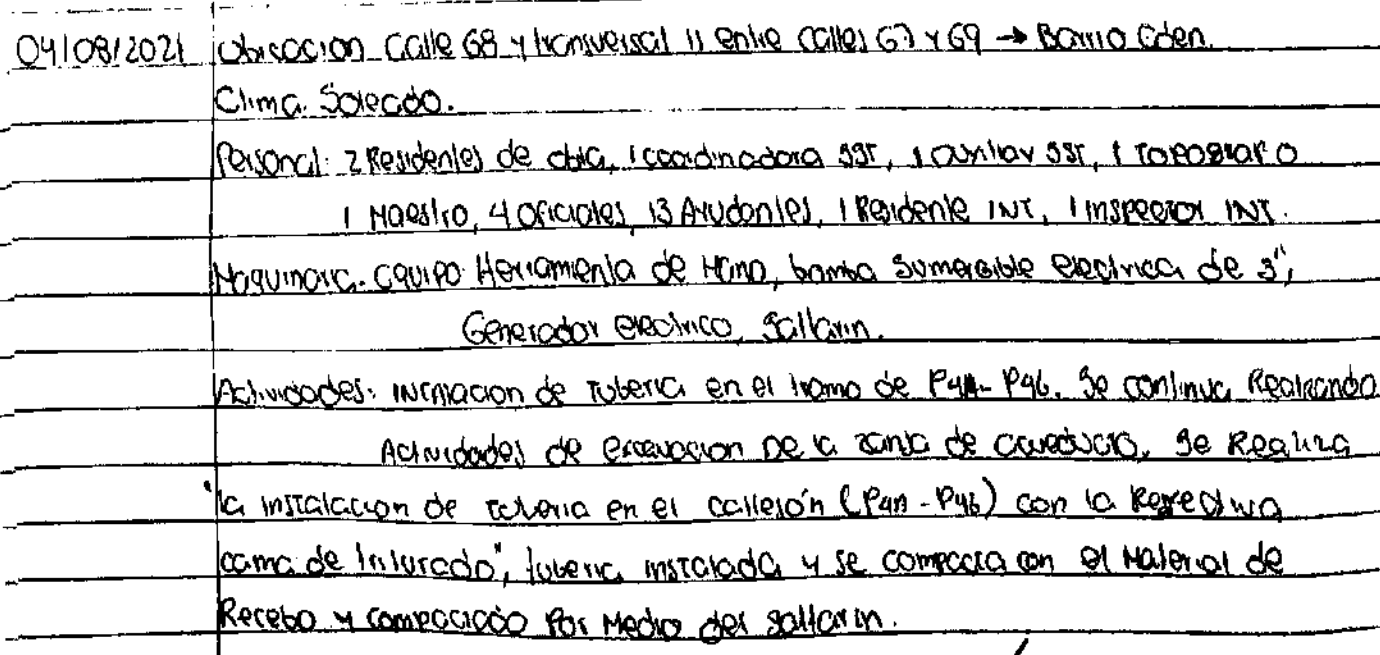 04/08/2021 Ubicacion Calle 68 y transversal 11 entre calles 67 y 69 → Barrio Eden.
Clima. Soleado.
Personal: 2 Residentes de obra, 1 coordinadora SST, 1 auxiliar SST, 1 Topografo
1 Maestro, 4 oficiales, 13 Ayudantes, 1 Residente INT, 1 inspector INT.
Maquinaria. equipo Herramienta de Mano, bomba sumergible electrica de 3",
Generador electrico, saltarin.
Actividades: de tuberia en el tramo de P4A-P4b. Se continua Realizando
Actividades de excavacion De la zanja de, se Realiza
la instalacion de tuberia en el callejón (P4A-P4b) con la Respectiva
cama de triturado", tuberia instalada y se compacta con el Material de
Recebo y compactado Por Medio del saltarin.